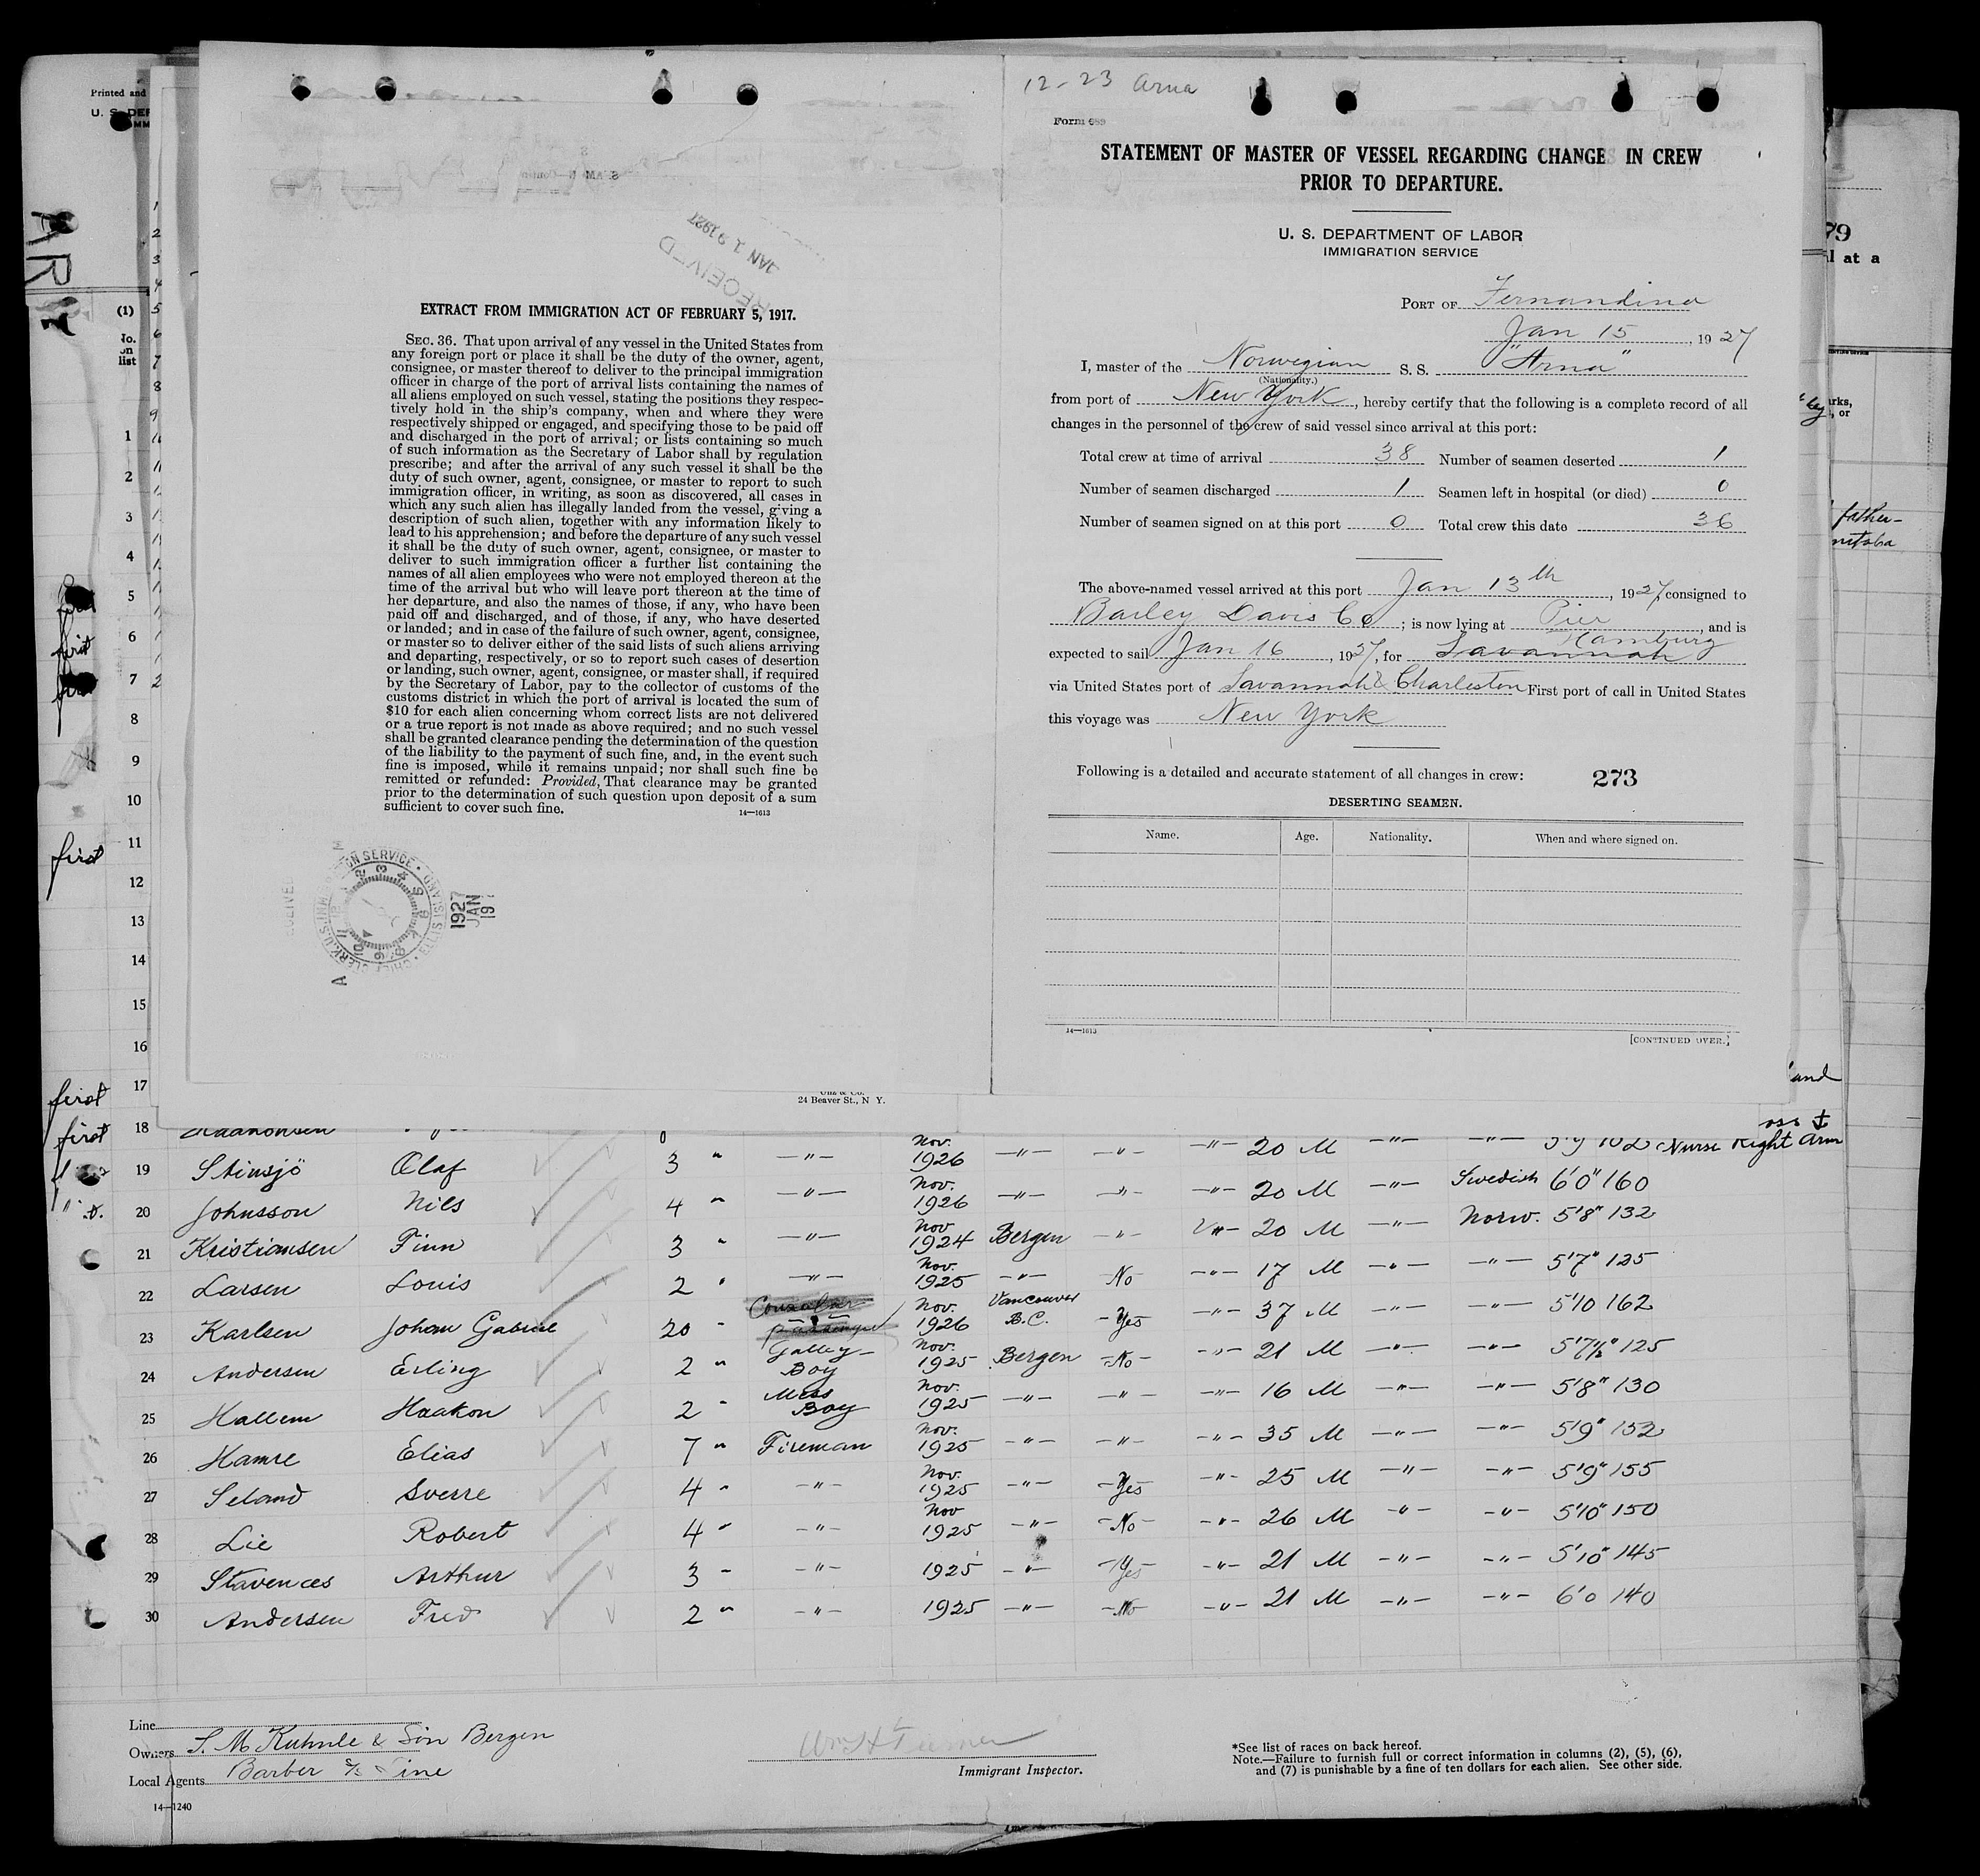 12-23 Arna
Form 689
STATEMENT OF MASTER OF VESSEL REGARDING CHANGES IN CREW
PRIOR TO DEPARTURE.
U. S. DEPARTMENT OF LABOR
IMMIGRATION SERVICE
PORT OF Fernandina
Jan 15, 1927
I, master of the Norwegian S. S. "Arna"
(Nationality.)
from port of New York, hereby certify that the following is a complete record of all
changes in the personnel of the crew of said vessel since arrival at this port:
Total crew at time of arrival 38 Number of seamen deserted 1
Number of seamen discharged 1 Seamen left in hospital (or died) 0
Number of seamen signed on at this port 0 Total crew this date 36
The above-named vessel arrived at this port Jan 13th, 1927, consigned to
Barley Davis Co; is now lying at Pier, and is
Hamburg
expected to sail Jan 16, 1927, for Savannah
via United States port of Savannah & Charleston First port of call in United States
this voyage was New York
Following is a detailed and accurate statement of all changes in crew: 273
DESERTING SEAMEN.
Name. Age. Nationality. When and where signed on.
14—1613
[CONTINUED OVER.]
RECEIVED
JAN 19 1927
EXTRACT FROM IMMIGRATION ACT OF FEBRUARY 5, 1917.
SEC. 36. That upon arrival of any vessel in the United States from
any foreign port or place it shall be the duty of the owner, agent,
consignee, or master thereof to deliver to the principal immigration
officer in charge of the port of arrival lists containing the names of
all aliens employed on such vessel, stating the positions they respec-
tively hold in the ship's company, when and where they were
respectively shipped or engaged, and specifying those to be paid off
and discharged in the port of arrival; or lists containing so much
of such information as the Secretary of Labor shall by regulation
prescribe; and after the arrival of any such vessel it shall be the
duty of such owner, agent, consignee, or master to report to such
immigration officer, in writing, as soon as discovered, all cases in
which any such alien has illegally landed from the vessel, giving a
description of such alien, together with any information likely to
lead to his apprehension; and before the departure of any such vessel
it shall be the duty of such owner, agent, consignee, or master to
deliver to such immigration officer a further list containing the
names of all alien employees who were not employed thereon at the
time of the arrival but who will leave port thereon at the time of
her departure, and also the names of those, if any, who have been
paid off and discharged, and of those, if any, who have deserted
or landed; and in case of the failure of such owner, agent, consignee,
or master so to deliver either of the said lists of such aliens arriving
and departing, respectively, or so to report such cases of desertion
or landing, such owner, agent, consignee, or master shall, if required
by the Secretary of Labor, pay to the collector of customs of the
customs district in which the port of arrival is located the sum of
$10 for each alien concerning whom correct lists are not delivered
or a true report is not made as above required; and no such vessel
shall be granted clearance pending the determination of the question
of the liability to the payment of such fine, and, in the event such
fine is imposed, while it remains unpaid; nor shall such fine be
remitted or refunded: Provided, That clearance may be granted
prior to the determination of such question upon deposit of a sum
sufficient to cover such fine.
14—1613
1927 JAN 19
24 Beaver St., N Y.
Printed and
(1)
No. on list
1
2
3
4
5
6
7
8
9
10
first 11
12
13
14
15
16
first 17
first 18
Nurse Right Arm
19 Stinsjö Olaf 3 " —"— Nov. 1926 —"— -"- -"- 20 M —"— —"—
20 Johnsson Nils 4 " —"— Nov. 1926 —"— -"- -"- 20 M —"— Swedish 6'0" 160
21 Kristiansen Finn 3 " —"— Nov 1924 Bergen -"- -"- 20 M —"— Norw. 5'8" 132
22 Larsen Louis 2 " —"— Nov. 1925 —"— No -"- 17 M —"— —"— 5'7" 125
23 Karlsen Johan Gabriel 20 " Nov. 1926 Vancouver B.C. Yes -"- 37 M —"— —"— 5'10 162
24 Andersen Erling 2 " Galley Boy Nov. 1925 Bergen No -"- 21 M —"— —"— 5'7½" 125
25 Hallem Haakon 2 " Mess Boy Nov. 1925 —"— —"— -"- 16 M —"— —"— 5'8" 130
26 Hamre Elias 7 " Fireman Nov. 1925 —"— —"— -"- 35 M —"— —"— 5'9" 152
27 Seland Sverre 4 " —"— Nov. 1925 —"— Yes -"- 25 M —"— —"— 5'9" 155
28 Lie Robert 4 " —"— Nov 1925 —"— No -"- 26 M —"— —"— 5'10" 150
29 Stavences Arthur 3 " —"— 1925 —"— Yes -"- 21 M —"— —"— 5'10" 145
30 Andersen Fred 2 " —"— 1925 —"— No -"- 21 M —"— —"— 6'0 140
Line
Owners S. M Kuhnle & Son Bergen
Local Agents Barber S/S Line
14—1240
Wm H Turner
Immigrant Inspector.
*See list of races on back hereof.
Note.—Failure to furnish full or correct information in columns (2), (5), (6),
and (7) is punishable by a fine of ten dollars for each alien. See other side.